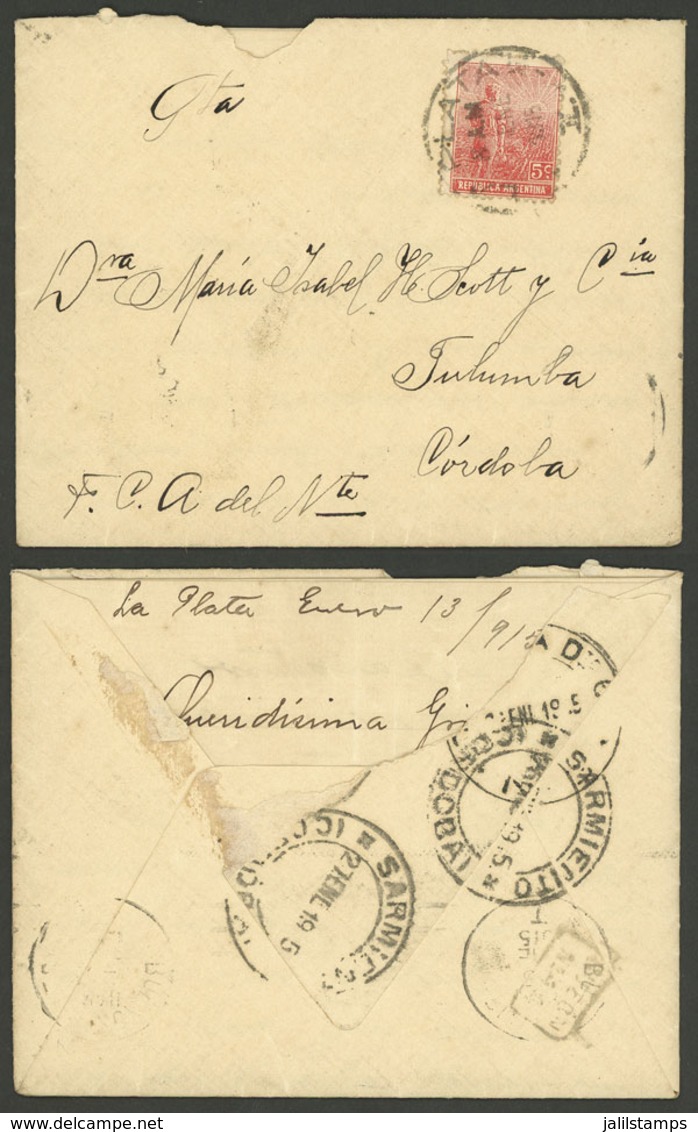 Gta
5c
REPUBLICA ARGENTINA
Dra María Isabel H. Scott y Cia
Tulumba
Córdoba
F. C. A del Nte
La Plata Enero 13/915
Queridísima
ENE 19 5
SARMIENTO
(CORDOBA)
19 5
SARMIEN
27 ENE 19 5
BUZON
jalilstamps